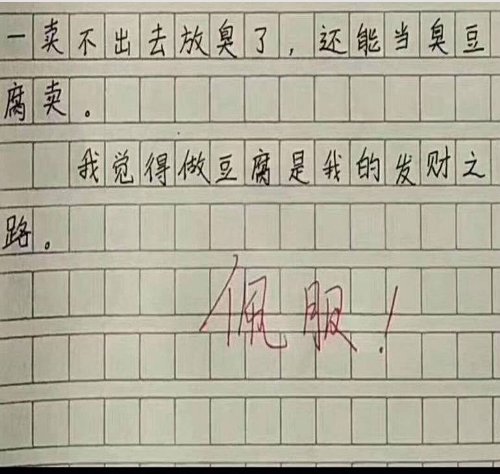 一卖不出去放臭了，还能当臭豆
腐卖。
我觉得做豆腐是我的发财之
路。
佩服！